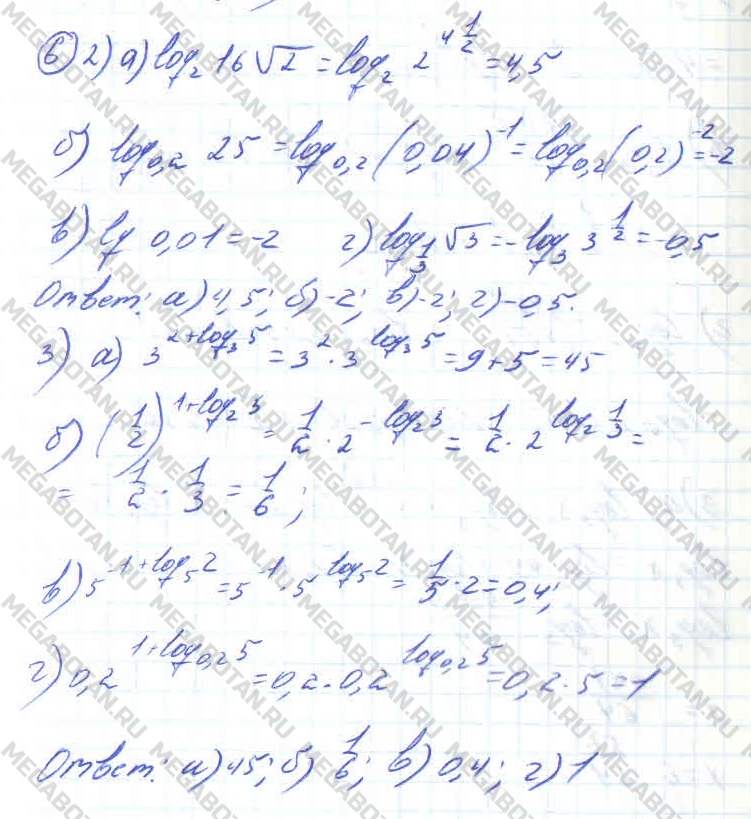 6 2) а) log₂ 16√2 = log₂ 2^(4 1/2) = 4,5
б) log₀,₂ 25 = log₀,₂ (0,04)⁻¹ = log₀,₂ (0,2)⁻² = -2
в) lg 0,01 = -2 г) log_(1/3) √3 = -log₃ 3^(1/2) = -0,5
Ответ: а) 4,5; б) -2; в) -2; г) -0,5.
3) а) 3^(2+log₃5) = 3² · 3^(log₃5) = 9 + 5 = 45
б) (1/2)^(1+log₂3) = 1/2 · 2^(-log₂3) = 1/2 · 2^(log₂ 1/3) =
= 1/2 · 1/3 = 1/6;
в) 5^(-1+log₅2) = 5⁻¹ · 5^(log₅2) = 1/5 · 2 = 0,4;
г) 0,2^(1+log₀,₂5) = 0,2 · 0,2^(log₀,₂5) = 0,2 · 5 = 1
Ответ: а) 45; б) 1/6; в) 0,4; г) 1
MEGABOTAN.RU